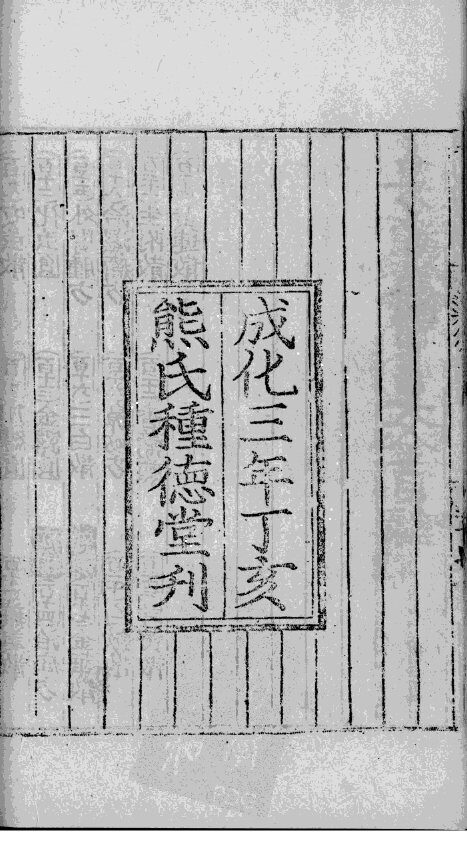 成化三年丁亥
熊氏種德堂刋